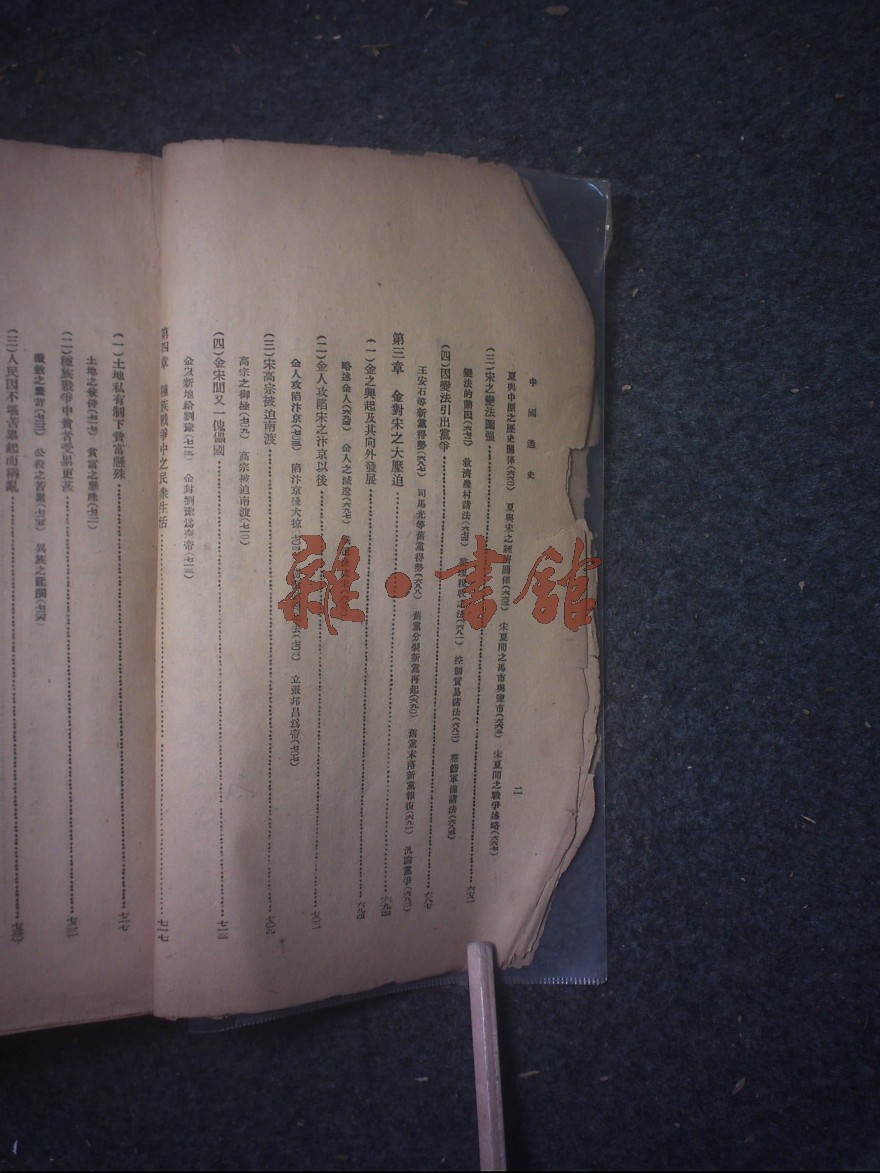 中國通史
二
夏與中原之歷史關係(六六三) 夏與宋之經濟關係(六六三) 宋夏間之馬市與鹽市(六六五) 宋夏間之戰爭述略(六六七)
(三)宋之變法圖強
變法的動因(六七二) 救濟農村諸法 控制貿易諸法(六八三) 整飭軍備諸法(六八五)
(四)因變法引出黨爭……六八七
王安石等新黨得勢(六八七) 司馬光等舊黨得勢(六八九) 舊黨分裂新黨再起(六九〇) 舊黨末落新黨報復(六九一) 汎論黨爭(六九三)
第三章 金對宋之大壓迫……六九四
(一)金之興起及其向外發展……六九四
略述金人(六九四)
(二)金人攻陷宋之汴京以後
金人攻陷汴京 陷汴京後大掠 立張邦昌爲帝(七〇七)
(三)宋高宗被迫南渡……七〇九
高宗之御極(七〇九) 高宗被迫南渡(七一〇)
(四)金宋間又一傀儡國……七一三
金以新地給劉豫(七一三) 金封劉豫爲齊帝(七一三)
第四章 種族戰爭中之民衆生活……七一七
(一)土地私有制下貧富懸殊……七一七
土地之兼併(七一七) 貧富之懸殊
(二)種族戰爭中貧苦受累更甚
公役之苦累
(三)人民因不堪苦累起而稱亂
雜·書館